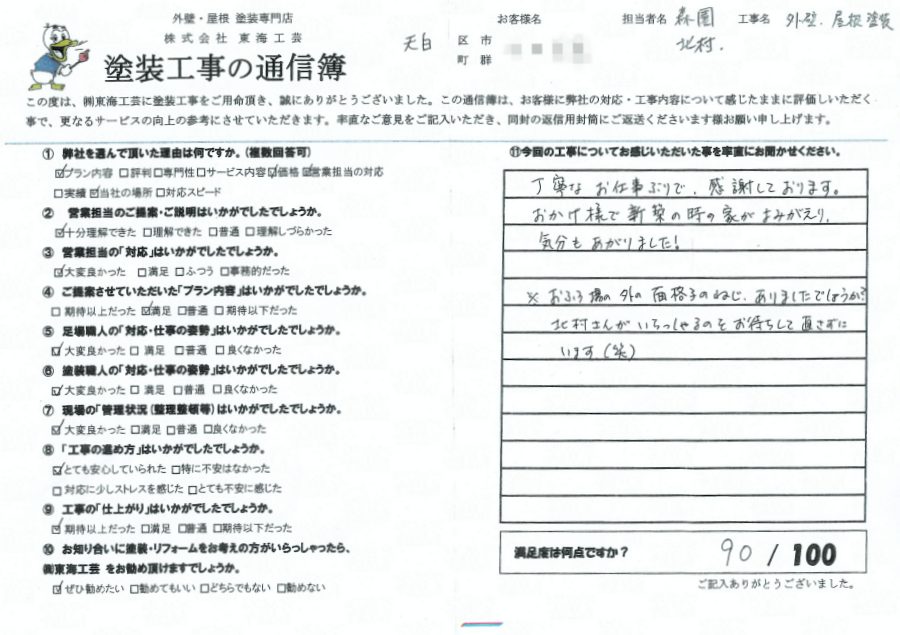 外壁・屋根 塗装専門店
株式会社 東海工芸
塗装工事の通信簿
天白 区 市
町 群
お客様名
担当者名 森園
北村.
工事名 外壁.屋根塗装
この度は、㈱東海工芸に塗装工事をご用命頂き、誠にありがとうございました。この通信簿は、お客様に弊社の対応・工事内容について感じたままに評価しいただく
事で、更なるサービスの向上の参考にさせていただきます。率直なご意見をご記入いただき、同封の返信用封筒にご返送くださいます様お願い申し上げます。
① 弊社を選んで頂いた理由は何ですか。(複数回答可)
☑プラン内容 □評判 □専門性 □サービス内容 ☑価格 ☑営業担当の対応
□実績 ☑当社の場所 □対応スピード
② 営業担当のご提案・ご説明はいかがでしたでしょうか。
☑十分理解できた □理解できた □普通 □理解しづらかった
③ 営業担当の「対応」はいかがでしたでしょうか。
☑大変良かった □満足 □ふつう □事務的だった
④ ご提案させていただいた「プラン内容」はいかがでしたでしょうか。
□期待以上だった ☑満足 □普通 □期待以下だった
⑤ 足場職人の「対応・仕事の姿勢」はいかがでしたでしょうか。
☑大変良かった □満足 □普通 □良くなかった
⑥ 塗装職人の「対応・仕事の姿勢」はいかがでしたでしょうか。
☑大変良かった □満足 □普通 □良くなかった
⑦ 現場の「管理状況(整理整頓等)はいかがでしたでしょうか。
☑大変良かった □満足 □普通 □良くなかった
⑧ 「工事の進め方」はいかがでしたでしょうか。
☑とても安心していられた □特に不安はなかった
□対応に少しストレスを感じた □とても不安に感じた
⑨ 工事の「仕上がり」はいかがでしたでしょうか。
☑期待以上だった □満足 □普通 □期待以下だった
⑩ お知り合いに塗装・リフォームをお考えの方がいらっしゃったら、
㈱東海工芸 をお勧め頂けますでしょうか。
☑ぜひ勧めたい □勧めてもいい □どちらでもない □勧めない
⑪今回の工事についてお感じいただいた事を率直にお聞かせください。
丁寧な お仕事ぶりで、感謝しております。
おかげ様で新築の時の家がよみがえり、
気分もあがりました!
※おふろ場の外の面格子のねじ、ありましたでしょうか?
北村さんがいらっしゃるのをお待ちして直さずに
います(笑)
満足度は何点ですか? 90 / 100
ご記入ありがとうございました。